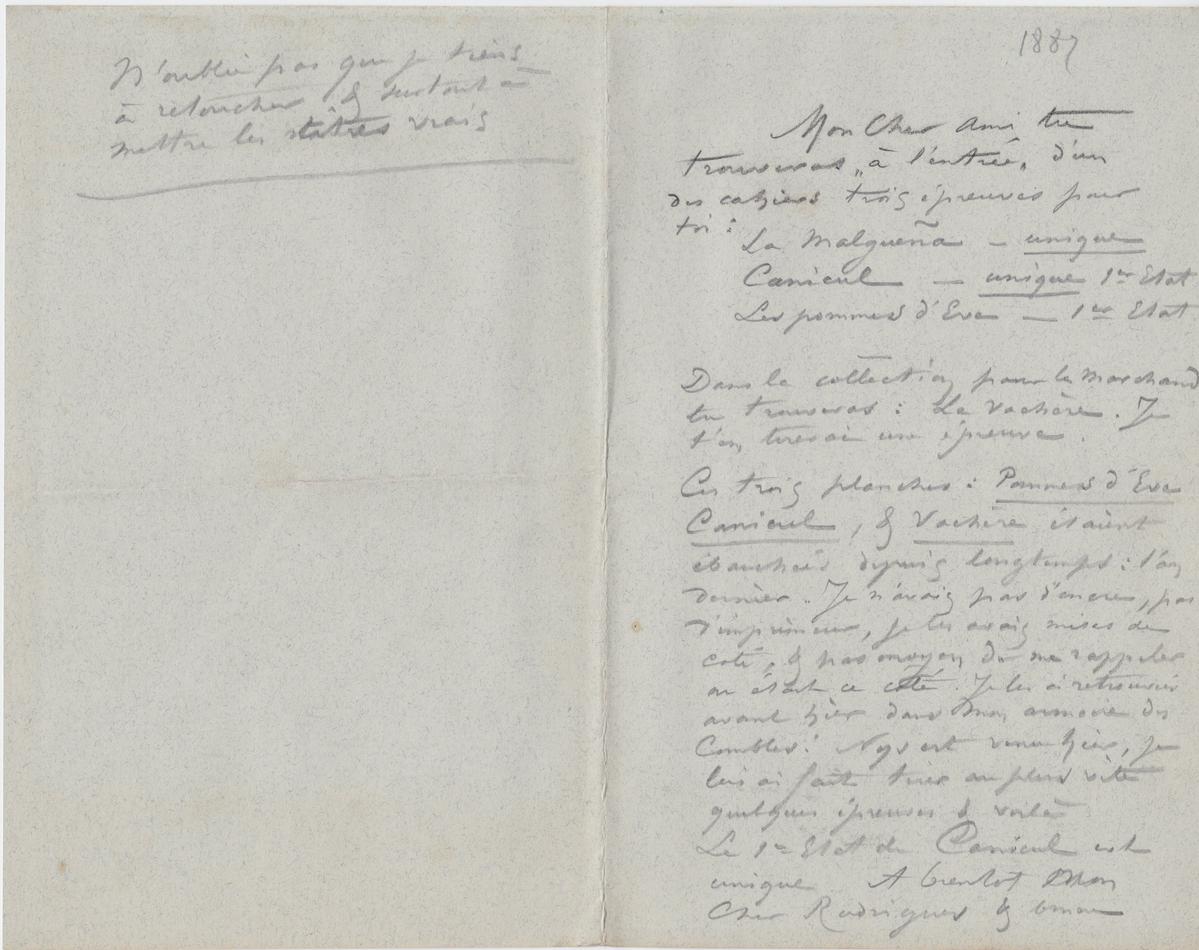 N'oublie pas que je tiens
à retoucher & surtout à
mettre les titres vrais
1887
Mon Cher ami tu
trouveras „à l'entrée„ d'un
des cahiers trois épreuves pour
toi :
La Malgueña – unique
Canicul — unique 1er Etat
Les pommes d'Eve — 1er Etat
Dans la collection pour le Marchand
tu trouveras : La Vachère. Je
t'en tirerai une épreuve.
Ces trois planches : Pommes d'Eve
Canicul, & Vachère étaient
ébauchées depuis longtemps : l'an
dernier. Je n'avais pas d'encre, pas
d'imprimeur, je les avais mises de
coté, & pas moyen de me rappeler
où était ce coté. Je les ai retrouvées
avant hier dans mon armoire des
Combles! Nys est venu hier, je
lui ai fait tirer au plus vite
quelques épreuves & voilà
Le 1er Etat de Canicul est
unique A bientot Mon
Cher Rodrigues &